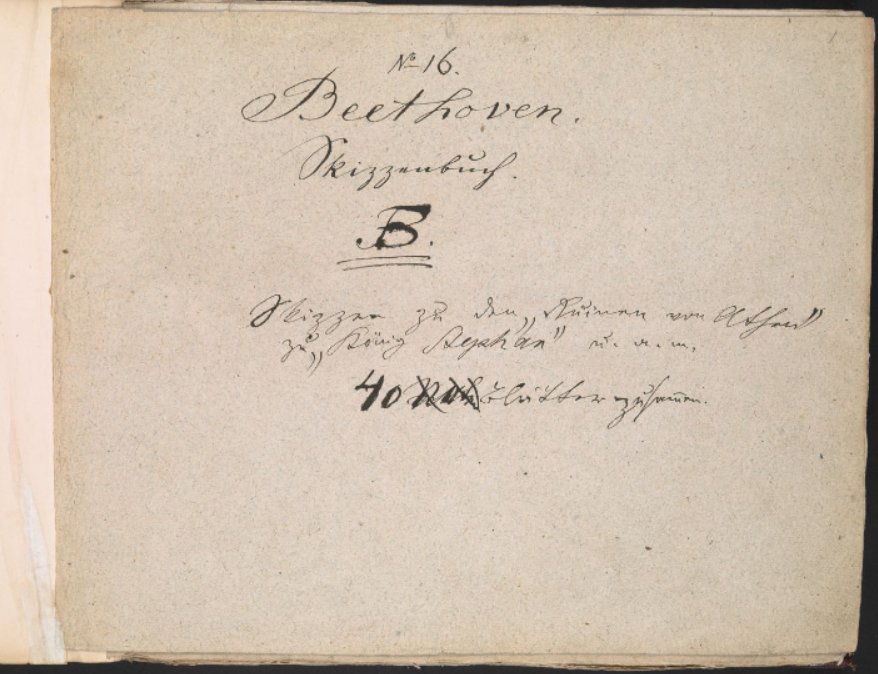 1
№ 16.
Beethoven.
Skizzenbuch.
B.
Skizzen zu den „Ruinen von Athen“
zu „König Stephan“ u. a. m.
40 Blätter zusammen.